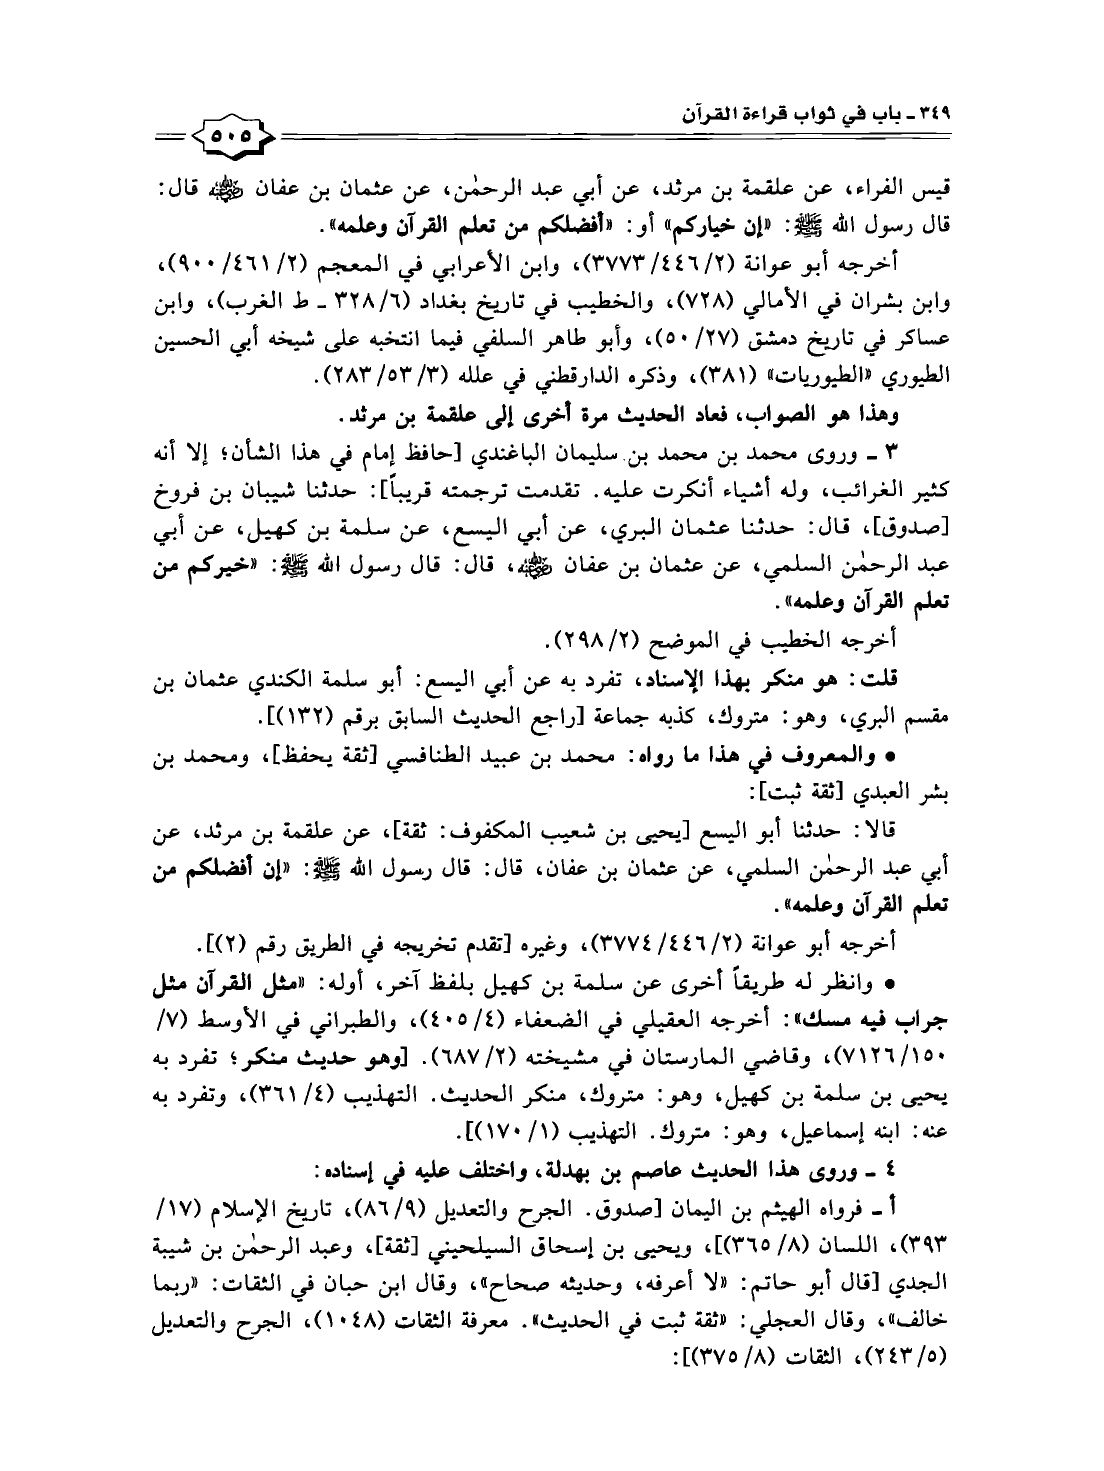 ٣٤٩ ـ باب في ثواب قراءة القرآن
٥٠٥
قيس الفراء، عن علقمة بن مرثد، عن أبي عبد الرحمٰن، عن عثمان بن عفان رضي الله عنه قال:
قال رسول الله ﷺ: «إن خياركم» أو: «أفضلكم من تعلم القرآن وعلمه».
أخرجه أبو عوانة (٣٧٧٣/٤٤٦/٢)، وابن الأعرابي في المعجم (٩٠٠/٤٦١/٢)،
وابن بشران في الأمالي (٧٢٨)، والخطيب في تاريخ بغداد (٣٢٨/٦ ـ ط الغرب)، وابن
عساكر في تاريخ دمشق (٥٠/٢٧)، وأبو طاهر السلفي فيما انتخبه على شيخه أبي الحسين
الطيوري «الطيوريات» (٣٨١)، وذكره الدارقطني في علله (٢٨٣/٥٣/٣).
وهذا هو الصواب، فعاد الحديث مرة أخرى إلى علقمة بن مرثد.
٣ ـ وروى محمد بن محمد بن سليمان الباغندي [حافظ إمام في هذا الشأن؛ إلا أنه
كثير الغرائب، وله أشياء أنكرت عليه. تقدمت ترجمته قريباً]: حدثنا شيبان بن فروخ
[صدوق]، قال: حدثنا عثمان البري، عن أبي اليسع، عن سلمة بن كهيل، عن أبي
عبد الرحمٰن السلمي، عن عثمان بن عفان رضي الله عنه، قال: قال رسول الله ﷺ: «خيركم من
تعلم القرآن وعلمه».
أخرجه الخطيب في الموضح (٢٩٨/٢).
قلت: هو منكر بهذا الإسناد، تفرد به عن أبي اليسع: أبو سلمة الكندي عثمان بن
مقسم البري، وهو: متروك، كذبه جماعة [راجع الحديث السابق برقم (١٣٢)].
• والمعروف في هذا ما رواه: محمد بن عبيد الطنافسي [ثقة يحفظ]، ومحمد بن
بشر العبدي [ثقة ثبت]:
قالا: حدثنا أبو اليسع [يحيى بن شعيب المكفوف: ثقة]، عن علقمة بن مرثد، عن
أبي عبد الرحمٰن السلمي، عن عثمان بن عفان، قال: قال رسول الله ﷺ: «إن أفضلكم من
تعلم القرآن وعلمه».
أخرجه أبو عوانة (٣٧٧٤/٤٤٦/٢)، وغيره [تقدم تخريجه في الطريق رقم (٢)].
• وانظر له طريقاً أخرى عن سلمة بن كهيل بلفظ آخر، أوله: «مثل القرآن مثل
جراب فيه مسك»: أخرجه العقيلي في الضعفاء (٤٠٥/٤)، والطبراني في الأوسط (٧/
٧١٢٦/١٥٠)، وقاضي المارستان في مشيخته (٦٨٧/٢). [وهو حديث منكر؛ تفرد به
يحيى بن سلمة بن كهيل، وهو: متروك، منكر الحديث. التهذيب (٣٦١/٤)، وتفرد به
عنه: ابنه إسماعيل، وهو: متروك. التهذيب (١٧٠/١)].
٤ ـ وروى هذا الحديث عاصم بن بهدلة، واختلف عليه في إسناده:
أ ـ فرواه الهيثم بن اليمان [صدوق. الجرح والتعديل (٨٦/٩)، تاريخ الإسلام (١٧/
٣٩٣)، اللسان (٣٦٥/٨)]، ويحيى بن إسحاق السيلحيني [ثقة]، وعبد الرحمٰن بن شيبة
الجدي [قال أبو حاتم: «لا أعرفه، وحديثه صحاح»، وقال ابن حبان في الثقات: «ربما
خالف»، وقال العجلي: «ثقة ثبت في الحديث». معرفة الثقات (١٠٤٨)، الجرح والتعديل
(٢٤٣/٥)، الثقات (٣٧٥/٨)]: